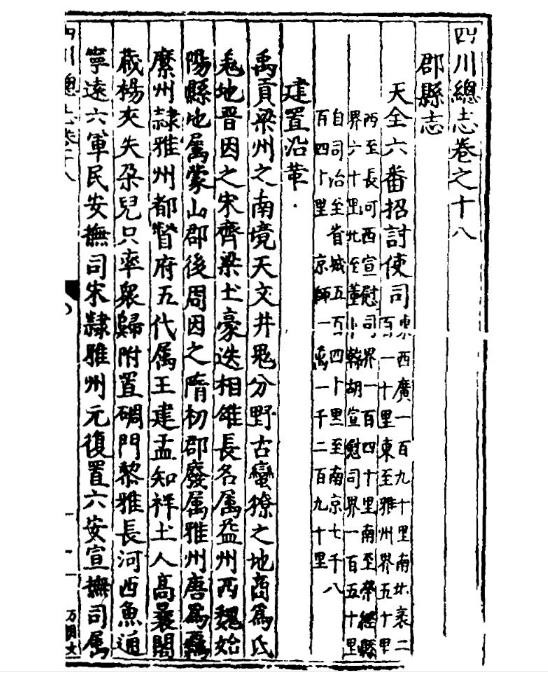 四川總志卷之十八
郡縣志
天全六番招討使司
東西廣一百九十里南北袤二
百一十里東至雅州界五十里
西至長河西宣慰司界一百四十里南至榮經縣
界六十里北至董卜韓胡宣慰司界一百五十里
自司治至省城五百四十里至南京七千八
百四十里 京師一萬一千二百九十里
建置沿革
禹貢梁州之南境天文井鬼分野古蠻獠之地商爲氐
羌地晉因之宋齊梁土豪迭相雄長名属益州西魏始
陽縣地属蒙山郡後周因之隋初郡廢属雅州唐爲羈
縻州隸雅州都督府五代属王建孟知祥土人高晸閻
蕆楊夾失朶兒只率衆歸附置碉門黎雅長河西魚通
寧遠六軍民安撫司宋隸雅州元復置六安宣撫司属
四川總志卷十八